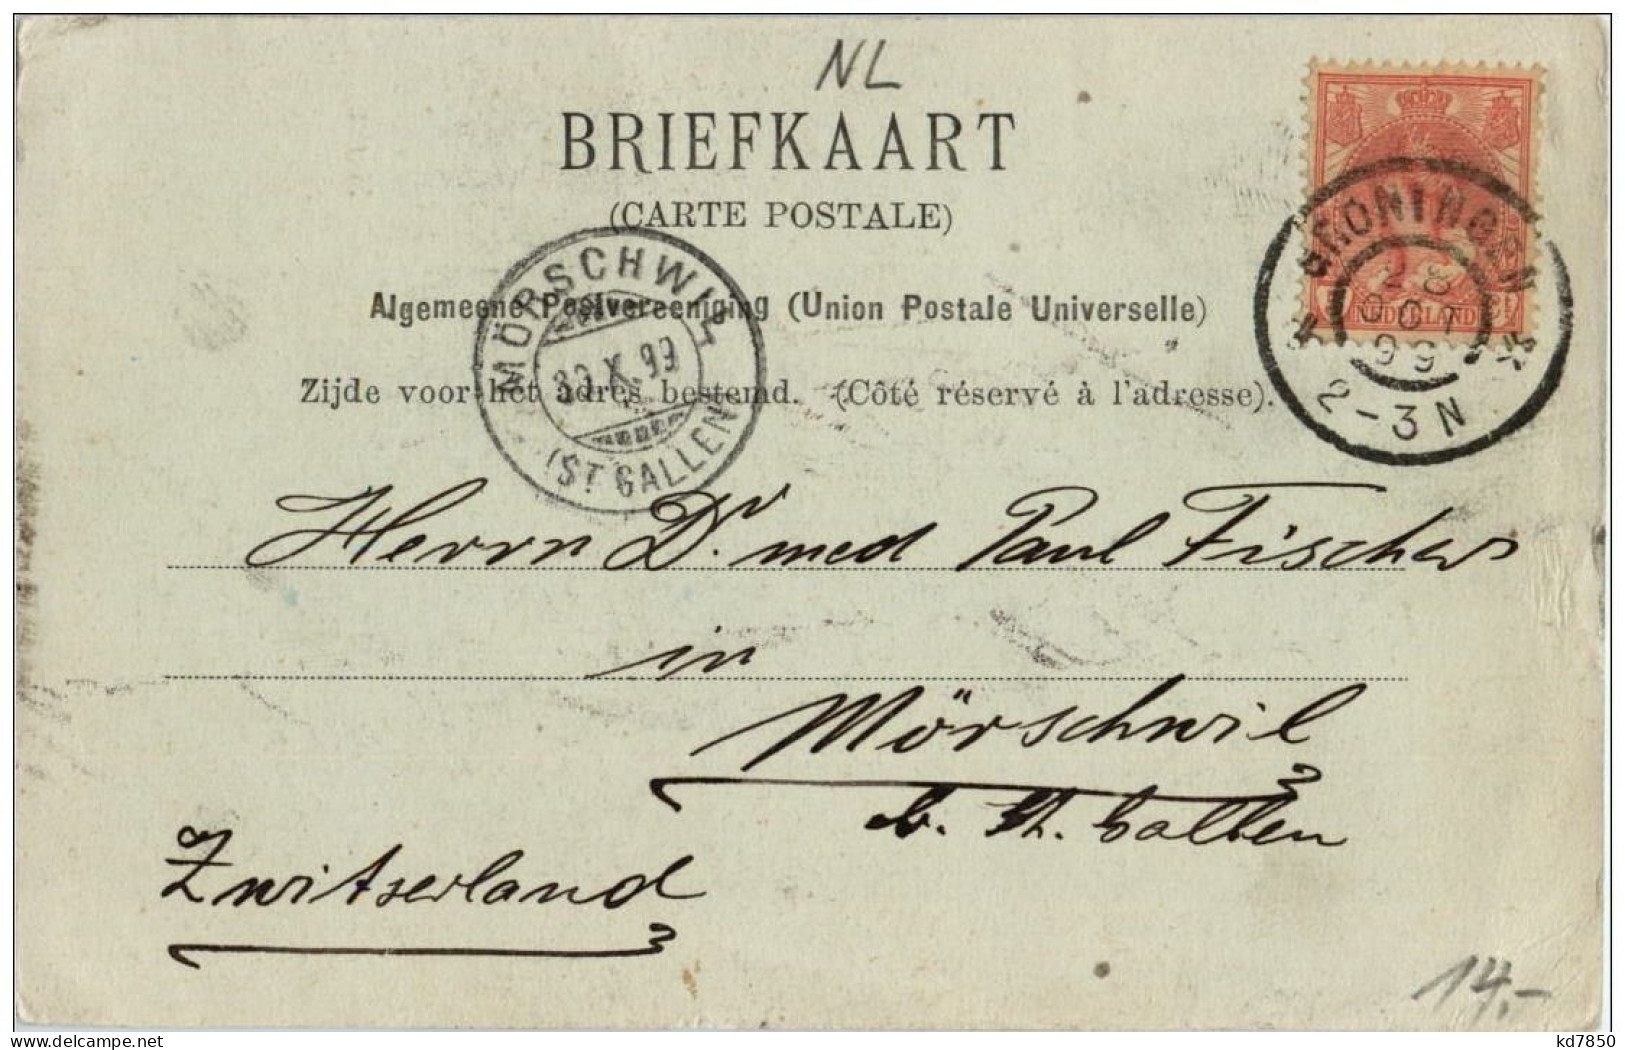 NL
BRIEFKAART
(CARTE POSTALE)
Algemeene Postvereeniging (Union Postale Universelle)
Zijde voor het adres bestemd. (Côté réservé à l'adresse).
MÖRSCHWIL
30.X.99
(ST. GALLEN)
GRONINGEN
28
OCT
99
2-3N
NEDERLAND
Herrn Dr. med Paul Fischer
in
Mörschwil
b. St. Gallen
Zwitserland
14,-
www.delcampe.net
kd7850